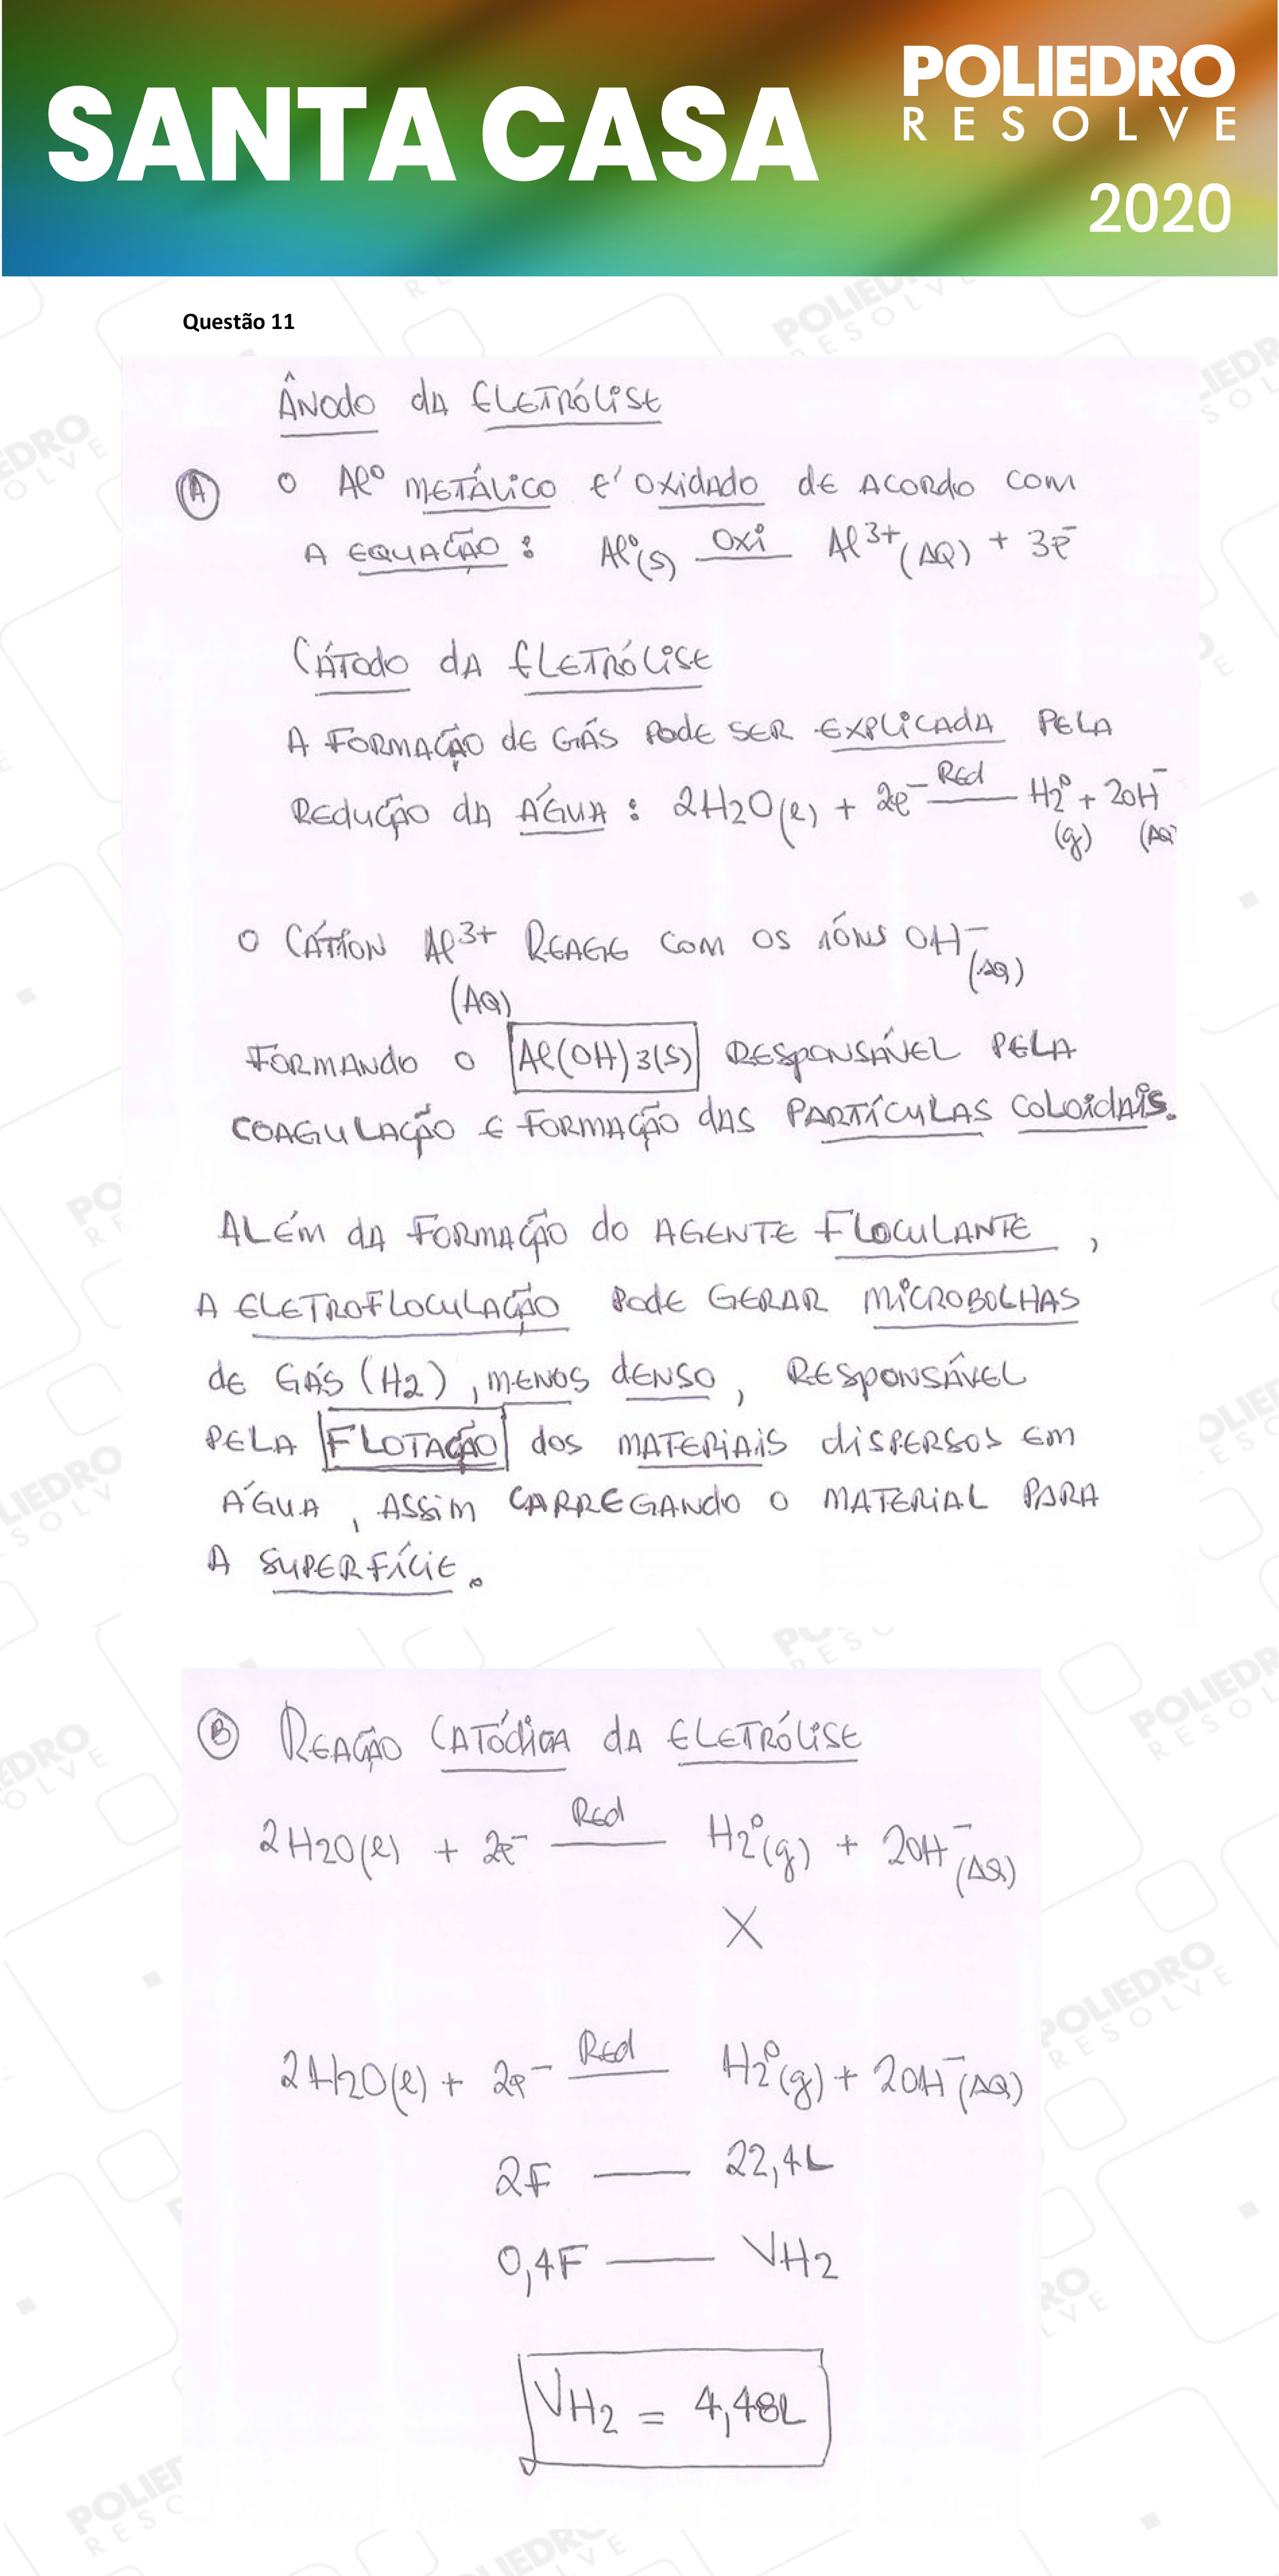 SANTA CASA
POLIEDRO
RESOLVE
2020
Questão 11
ÂNODO DA ELETRÓLISE
A O Al⁰ METÁLICO É OXIDADO DE ACORDO COM
A EQUAÇÃO: Al⁰(S) —OXI— Al³⁺(AQ) + 3e⁻
CÁTODO DA ELETRÓLISE
A FORMAÇÃO DE GÁS PODE SER EXPLICADA PELA
REDUÇÃO DA ÁGUA: 2H2O(l) + 2e⁻ —RED— H2⁰(g) + 2OH⁻(AQ)
O CÁTION Al³⁺(AQ) REAGE COM OS ÍONS OH⁻(AQ)
FORMANDO O Al(OH)3(S) RESPONSÁVEL PELA
COAGULAÇÃO E FORMAÇÃO DAS PARTÍCULAS COLOIDAIS.
ALÉM DA FORMAÇÃO DO AGENTE FLOCULANTE,
A ELETROFLOCULAÇÃO PODE GERAR MICROBOLHAS
DE GÁS (H2), MENOS DENSO, RESPONSÁVEL
PELA FLOTAÇÃO DOS MATERIAIS DISPERSOS EM
ÁGUA, ASSIM CARREGANDO O MATERIAL PARA
A SUPERFÍCIE.
B REAÇÃO CATÓDICA DA ELETRÓLISE
2H2O(l) + 2e⁻ —Red— H2⁰(g) + 2OH⁻(AQ)
X
2H2O(l) + 2e⁻ —Red— H2⁰(g) + 2OH⁻(AQ)
2F — 22,4L
0,4F — VH2
VH2 = 4,48L